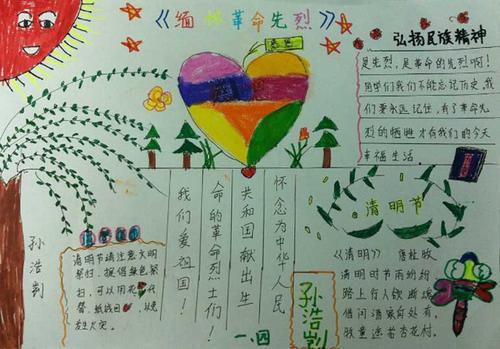 《缅怀革命先烈》
弘扬民族精神
是先烈，是革命的先烈啊！
同学们我们不能忘记历史，我
们要永远记住，有了革命先
烈的牺牲才有我们的今天
幸福生活。
怀念为中华人民
共和国献出生
命的革命烈士们！
我们爱祖国！
孙浩哲
清明节请注意文明
祭扫，提倡绿色祭
扫，可以用花
替，纸钱
发生火灾。
一.四
孙浩哲
清明节
《清明》 唐杜牧
清明时节雨纷纷
路上行人欲断魂
借问酒家何处有
牧童遥指杏花村。